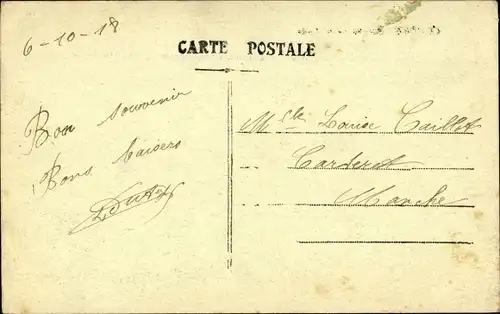 6-10-18
CARTE POSTALE
Bon souvenir
Bons baisers
Mlle Louise Caillot
Carteret
Manche